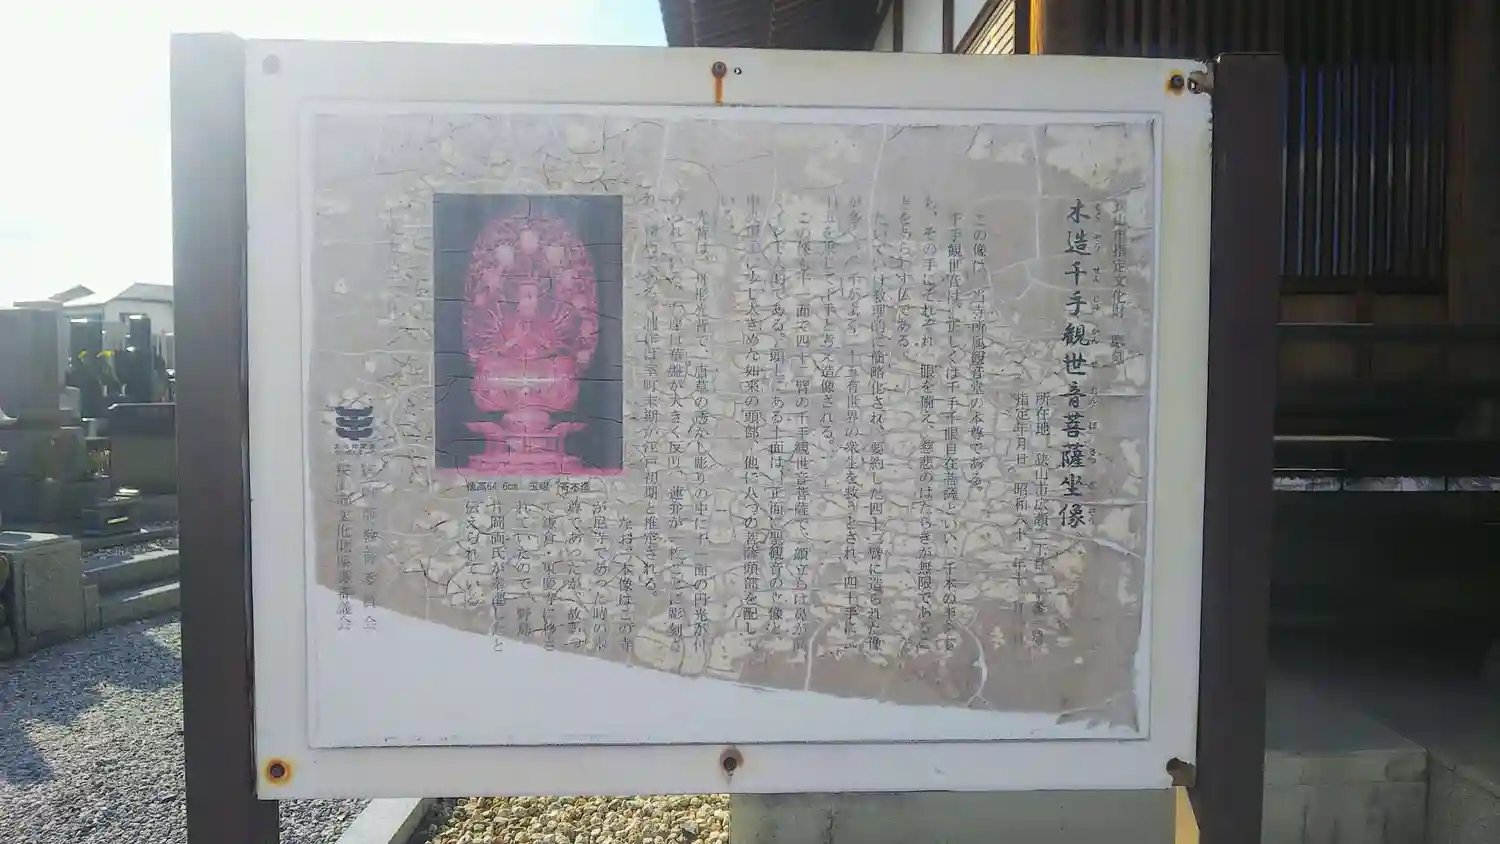 狭山市指定文化財 彫刻
木造千手観世音菩薩坐像
所在地 狭山市広瀬二丁目
指定年月日 昭和六十二年十
この像は、当寺所属観音堂の本尊である。
千手観世音は、正しくは千手千眼自在菩薩といい、千本の手を
も、その手にそれぞれ一眼を備え、慈悲のはたらきが無限であるこ
とをあらわす仏である。
数理的に簡略化され、要約した四十二臂に造られた像
が多く、十五有世界の衆生を救うとされ、四十手に
五を乗じて千手と考え造像される。
この像も十一面で四十二臂の千手観世音菩薩で、顔立ちは鼻が
である。頭上にある十一面は、正面に聖観音の立像と、
中央頂上に少し大きめた如来の頭部、他に八つの菩薩頭部を配し
いる。
光背は、舟形光背で、唐草の透かし彫りの中に十一面の円光が付
けられている。台座は華盤が大きく反り、蓮弁が一枚ごとに彫刻さ
れ、制作は室町末期か江戸初期と推定される。
なお、本像はこの寺
が尼寺であった時の本
尊であったが、故あって
鎌倉・東慶寺に移さ
れていたので、野島
片岡両氏が奉遷したと
伝えられている。
像高64.6cm 玉眼 寄木造
狭山市教育委員会
狭山市文化財保護審議会